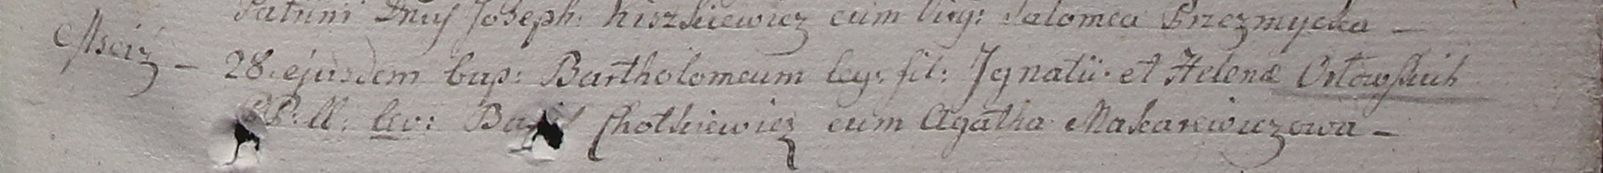 Patrini Dnus Joseph: Kiszkiewicz cum virg: Salomea Przezmycka —
Mściż — 28. ejusdem bap: Bartholomeum leg: fil: Ignatii et Helenæ Orłowskich
PP. ll: lev: Chotkiewicz cum Agatha Makarewiczowa —